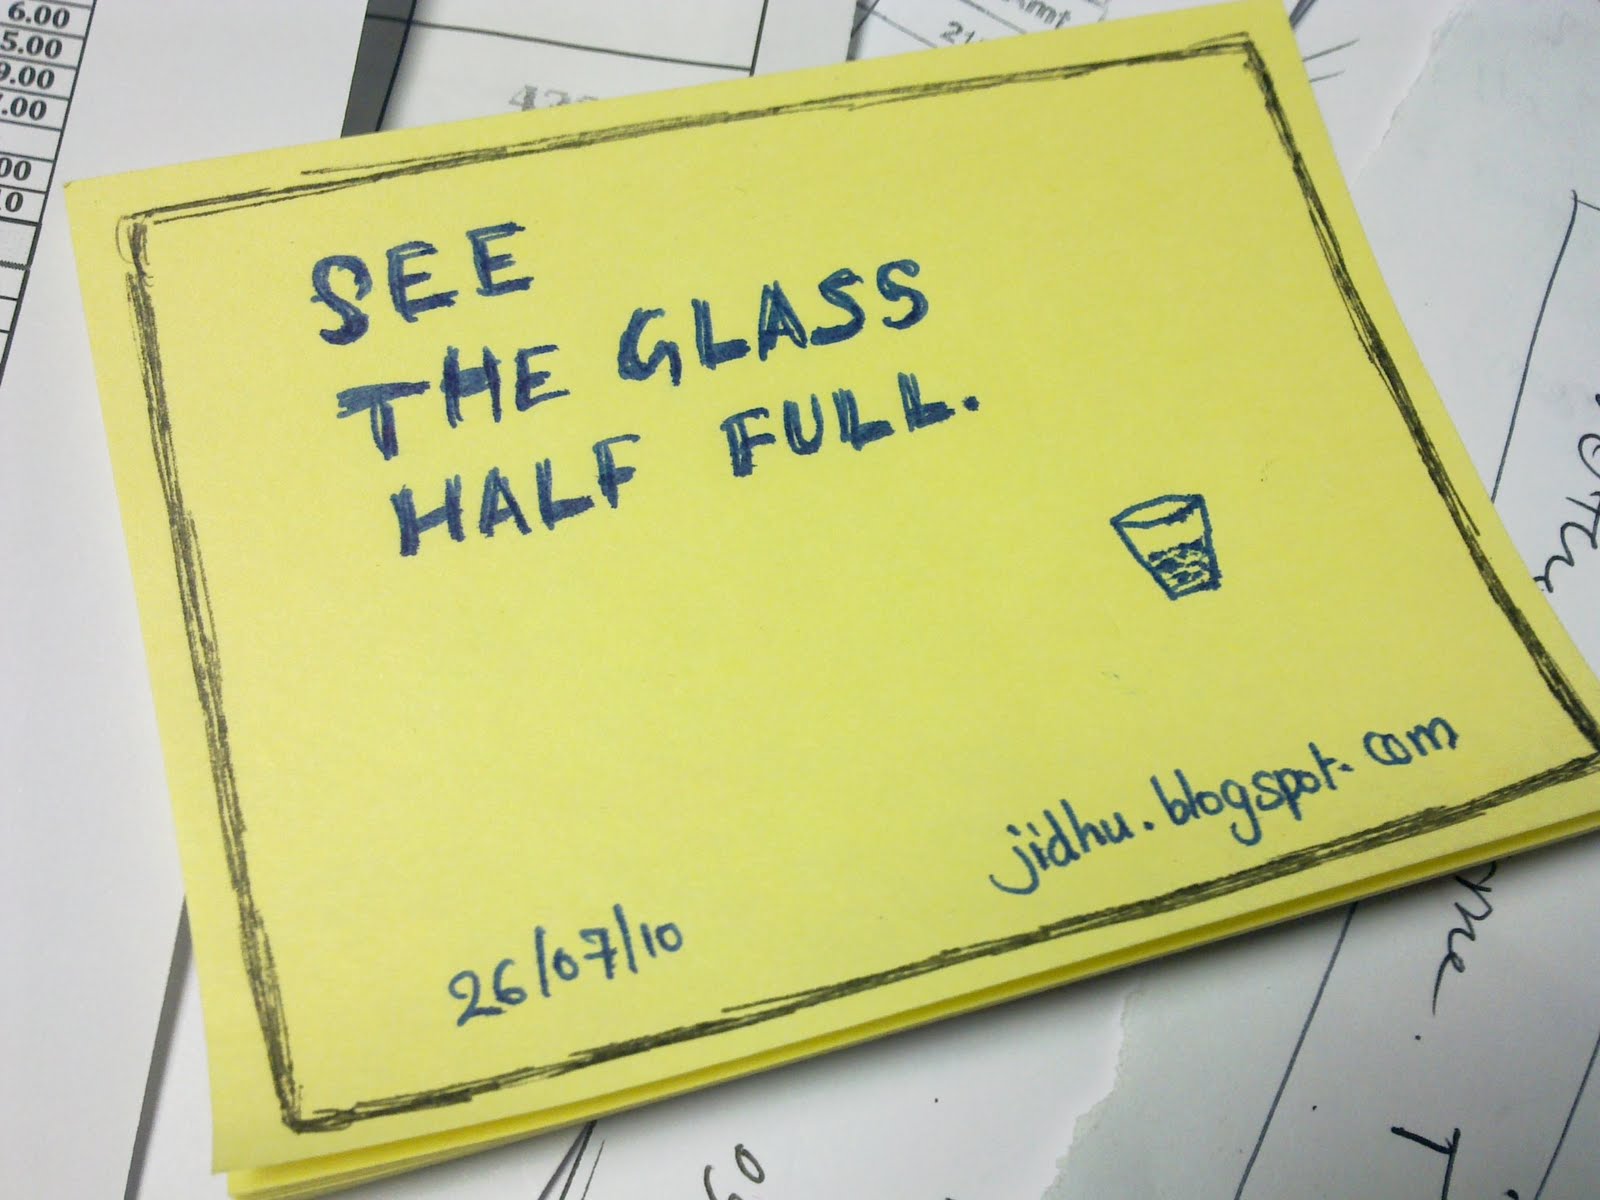 6.00
5.00
9.00
.00
00
10
SEE
THE GLASS
HALF FULL.
jidhu.blogspot.com
26/07/10